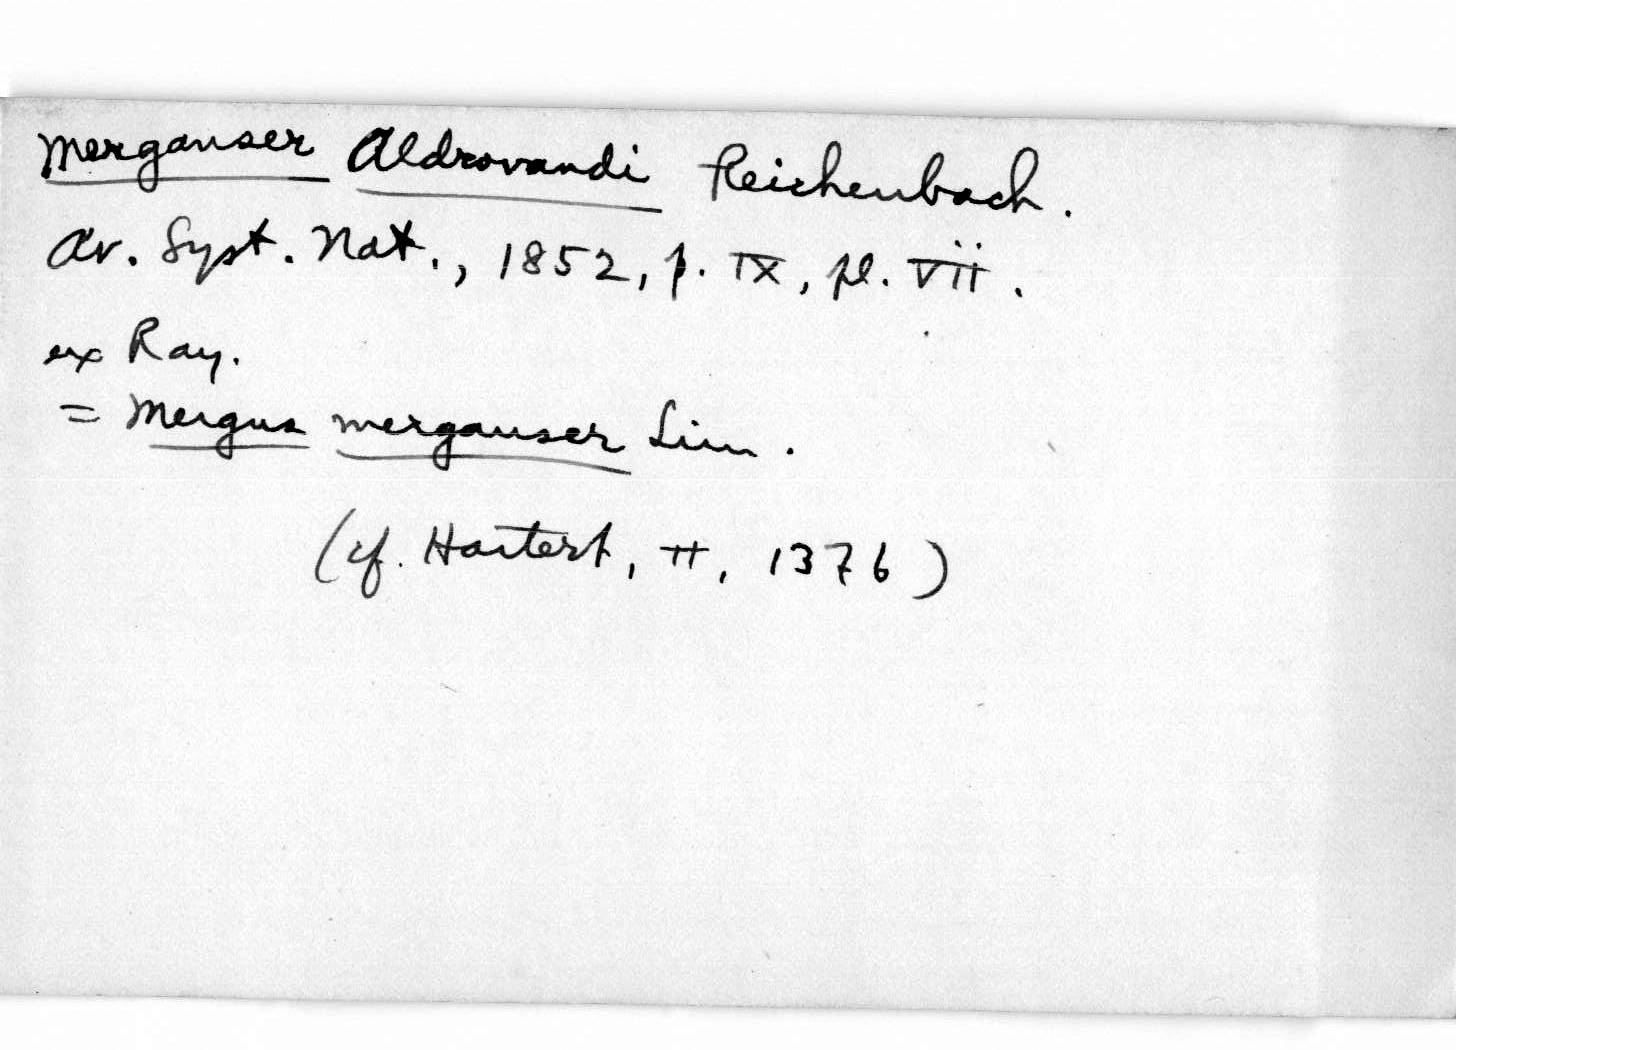 Merganser Aldrovandi Reichenbach.
Av. Syst. Nat., 1852, p. IX, pl. VII.
ex Ray.
= Mergus merganser Linn.
(cf. Hartert, II, 1376)